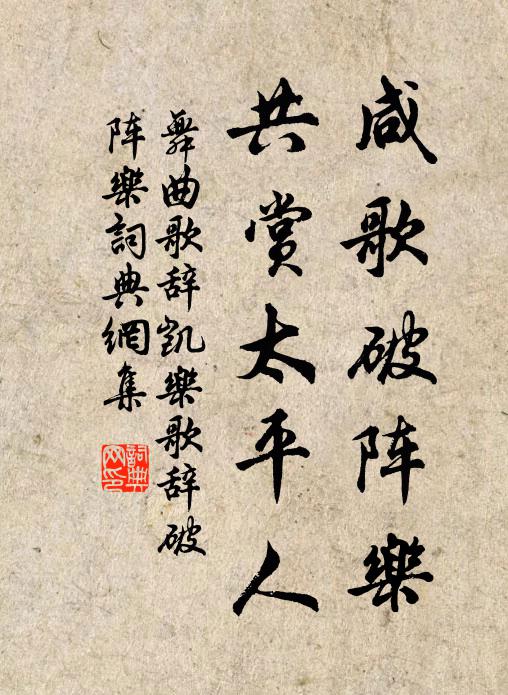 咸歌破阵樂
共赏太平人
舞曲歌辞凯樂歌辞破
阵樂詞典網集
詞典
网印